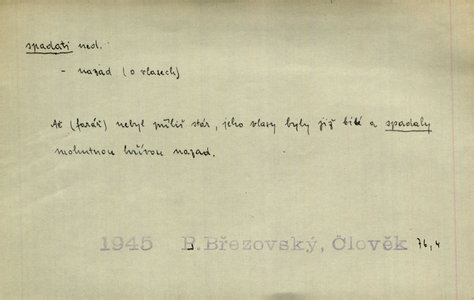 spadati ned.
- nazad (o vlasech)
Ač (farář) nebyl příliš stár, jeho vlasy byly již bílé a spadaly
mohutnou hřívou nazad.
1945 B. Březovský, Člověk 76,4